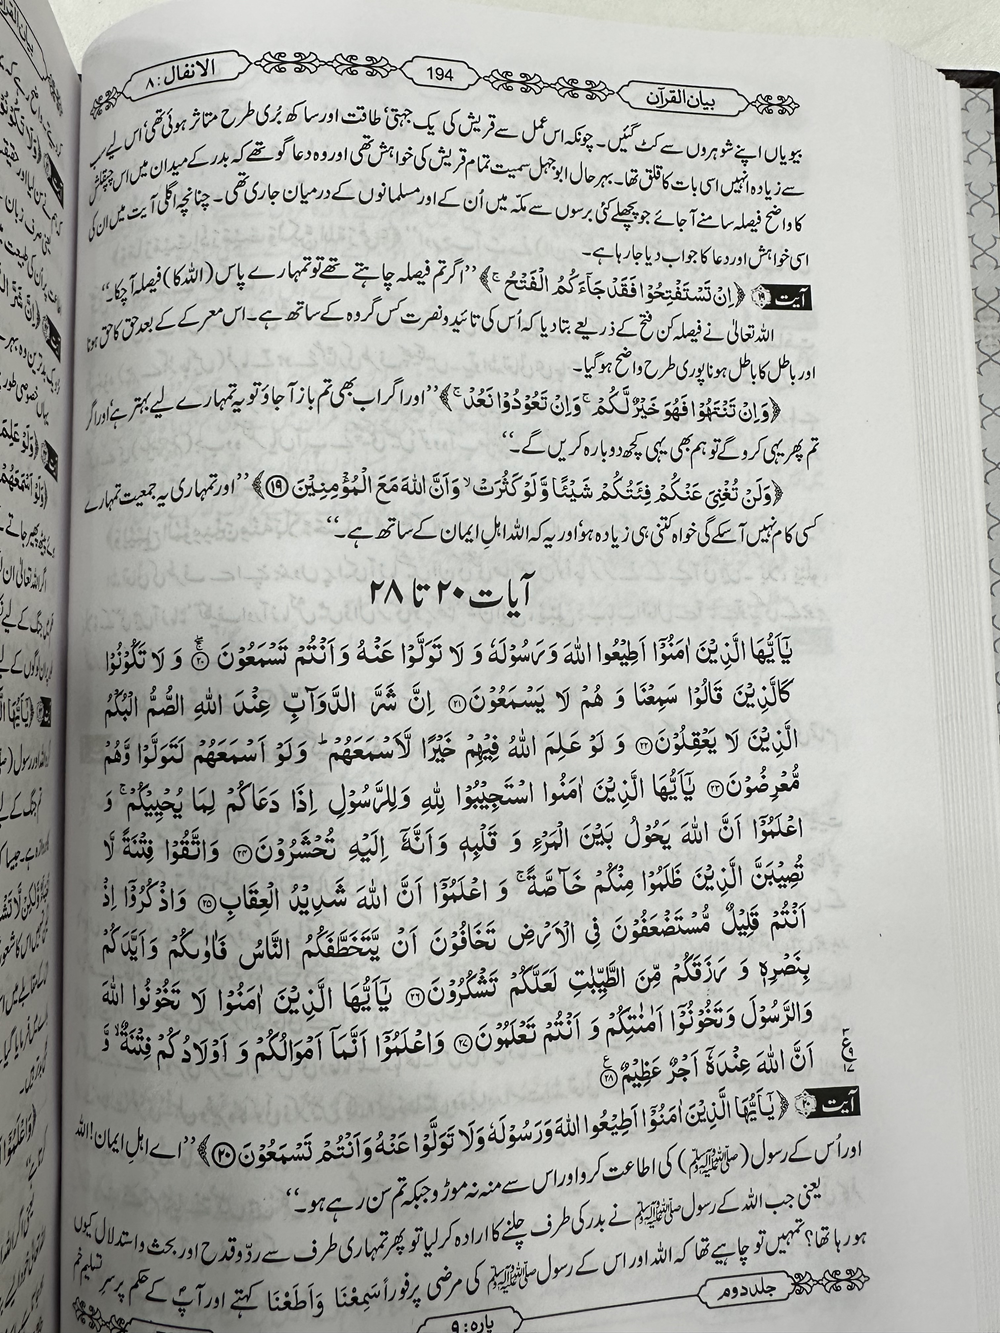 بیان القرآن 194 الانفال : ۸
بیویاں اپنے شوہروں سے کٹ گئیں۔ چونکہ اس عمل سے قریش کی یک جہتی‘ طاقت اور ساکھ بُری طرح متاثر ہوئی تھی‘ اس لیے سب
سے زیادہ انہیں اسی بات کا قلق تھا۔ بہرحال ابوجہل سمیت تمام قریش کی خواہش تھی اور وہ دعا گو تھے کہ بدر کے میدان میں اس چپقلش
کا واضح فیصلہ سامنے آ جائے جو پچھلے کئی برسوں سے مکّہ میں اُن کے اور مسلمانوں کے درمیان جاری تھی۔ چنانچہ اگلی آیت میں ان کی
اسی خواہش اور دعا کا جواب دیا جا رہا ہے۔
آیت ۱۹ ﴿اِنۡ تَسۡتَفۡتِحُوۡا فَقَدۡ جَآءَکُمُ الۡفَتۡحُ ۚ﴾ ’’اگر تم فیصلہ چاہتے تھے تو تمہارے پاس (اللہ کا) فیصلہ آ چکا۔‘‘
اللہ تعالیٰ نے فیصلہ کن فتح کے ذریعے بتا دیا کہ اُس کی تائید و نصرت کس گروہ کے ساتھ ہے۔ اس معرکے کے بعد حق کا حق ہونا
اور باطل کا باطل ہونا پوری طرح واضح ہو گیا۔
﴿وَ اِنۡ تَنۡتَہُوۡا فَہُوَ خَیۡرٌ لَّکُمۡ ۚ وَ اِنۡ تَعُوۡدُوۡا نَعُدۡ ۚ﴾ ’’اور اگر اب بھی تم باز آ جاؤ تو یہ تمہارے لیے بہتر ہے‘ اور اگر
تم پھر یہی کرو گے تو ہم بھی یہی کچھ دوبارہ کریں گے۔‘‘
﴿وَ لَنۡ تُغۡنِیَ عَنۡکُمۡ فِئَتُکُمۡ شَیۡئًا وَّ لَوۡ کَثُرَتۡ ۙ وَ اَنَّ اللہَ مَعَ الۡمُؤۡمِنِیۡنَ ﴿۱۹﴾﴾ ’’اور تمہاری یہ جمعیت تمہارے
کسی کام نہیں آ سکے گی خواہ کتنی ہی زیادہ ہو‘ اور یہ کہ اللہ اہلِ ایمان کے ساتھ ہے۔‘‘
آیات ۲۰ تا ۲۸
یٰۤاَیُّہَا الَّذِیۡنَ اٰمَنُوۡۤا اَطِیۡعُوا اللہَ وَ رَسُوۡلَہٗ وَ لَا تَوَلَّوۡا عَنۡہُ وَ اَنۡتُمۡ تَسۡمَعُوۡنَ ﴿۲۰﴾ وَ لَا تَکُوۡنُوۡا
کَالَّذِیۡنَ قَالُوۡا سَمِعۡنَا وَ ہُمۡ لَا یَسۡمَعُوۡنَ ﴿۲۱﴾ اِنَّ شَرَّ الدَّوَآبِّ عِنۡدَ اللہِ الصُّمُّ الۡبُکۡمُ
الَّذِیۡنَ لَا یَعۡقِلُوۡنَ ﴿۲۲﴾ وَ لَوۡ عَلِمَ اللہُ فِیۡہِمۡ خَیۡرًا لَّاَسۡمَعَہُمۡ ؕ وَ لَوۡ اَسۡمَعَہُمۡ لَتَوَلَّوۡا وَّ ہُمۡ
مُّعۡرِضُوۡنَ ﴿۲۳﴾ یٰۤاَیُّہَا الَّذِیۡنَ اٰمَنُوا اسۡتَجِیۡبُوۡا لِلہِ وَ لِلرَّسُوۡلِ اِذَا دَعَاکُمۡ لِمَا یُحۡیِیۡکُمۡ ۚ وَ
اعۡلَمُوۡۤا اَنَّ اللہَ یَحُوۡلُ بَیۡنَ الۡمَرۡءِ وَ قَلۡبِہٖ وَ اَنَّہٗۤ اِلَیۡہِ تُحۡشَرُوۡنَ ﴿۲۴﴾ وَ اتَّقُوۡا فِتۡنَۃً لَّا
تُصِیۡبَنَّ الَّذِیۡنَ ظَلَمُوۡا مِنۡکُمۡ خَآصَّۃً ۚ وَ اعۡلَمُوۡۤا اَنَّ اللہَ شَدِیۡدُ الۡعِقَابِ ﴿۲۵﴾ وَ اذۡکُرُوۡۤا اِذۡ
اَنۡتُمۡ قَلِیۡلٌ مُّسۡتَضۡعَفُوۡنَ فِی الۡاَرۡضِ تَخَافُوۡنَ اَنۡ یَّتَخَطَّفَکُمُ النَّاسُ فَاٰوٰىکُمۡ وَ اَیَّدَکُمۡ
بِنَصۡرِہٖ وَ رَزَقَکُمۡ مِّنَ الطَّیِّبٰتِ لَعَلَّکُمۡ تَشۡکُرُوۡنَ ﴿۲۶﴾ یٰۤاَیُّہَا الَّذِیۡنَ اٰمَنُوۡا لَا تَخُوۡنُوا اللہَ
وَ الرَّسُوۡلَ وَ تَخُوۡنُوۡۤا اَمٰنٰتِکُمۡ وَ اَنۡتُمۡ تَعۡلَمُوۡنَ ﴿۲۷﴾ وَ اعۡلَمُوۡۤا اَنَّمَاۤ اَمۡوَالُکُمۡ وَ اَوۡلَادُکُمۡ فِتۡنَۃٌ ۙ وَّ
اَنَّ اللہَ عِنۡدَہٗۤ اَجۡرٌ عَظِیۡمٌ ﴿۲۸﴾
آیت ۲۰ ﴿یٰۤاَیُّہَا الَّذِیۡنَ اٰمَنُوۡۤا اَطِیۡعُوا اللہَ وَ رَسُوۡلَہٗ وَ لَا تَوَلَّوۡا عَنۡہُ وَ اَنۡتُمۡ تَسۡمَعُوۡنَ ﴿۲۰﴾﴾ ’’اے اہلِ ایمان! اللہ
اور اُس کے رسول (ﷺ) کی اطاعت کرو اور اس سے منہ نہ موڑو جبکہ تم سن رہے ہو۔‘‘
یعنی جب اللہ کے رسول ﷺ نے بدر کی طرف چلنے کا ارادہ کر لیا تو پھر تمہاری طرف سے ردّ و قدح اور بحث و استدلال کیوں
ہو رہا تھا؟ تمہیں تو چاہیے تھا کہ اللہ اور اس کے رسول ﷺ کی مرضی پر فوراً سَمِعۡنَا وَ اَطَعۡنَا کہتے اور آپؐ کے حکم پر سرِ تسلیم خم
جلد دوم پارہ : ۹